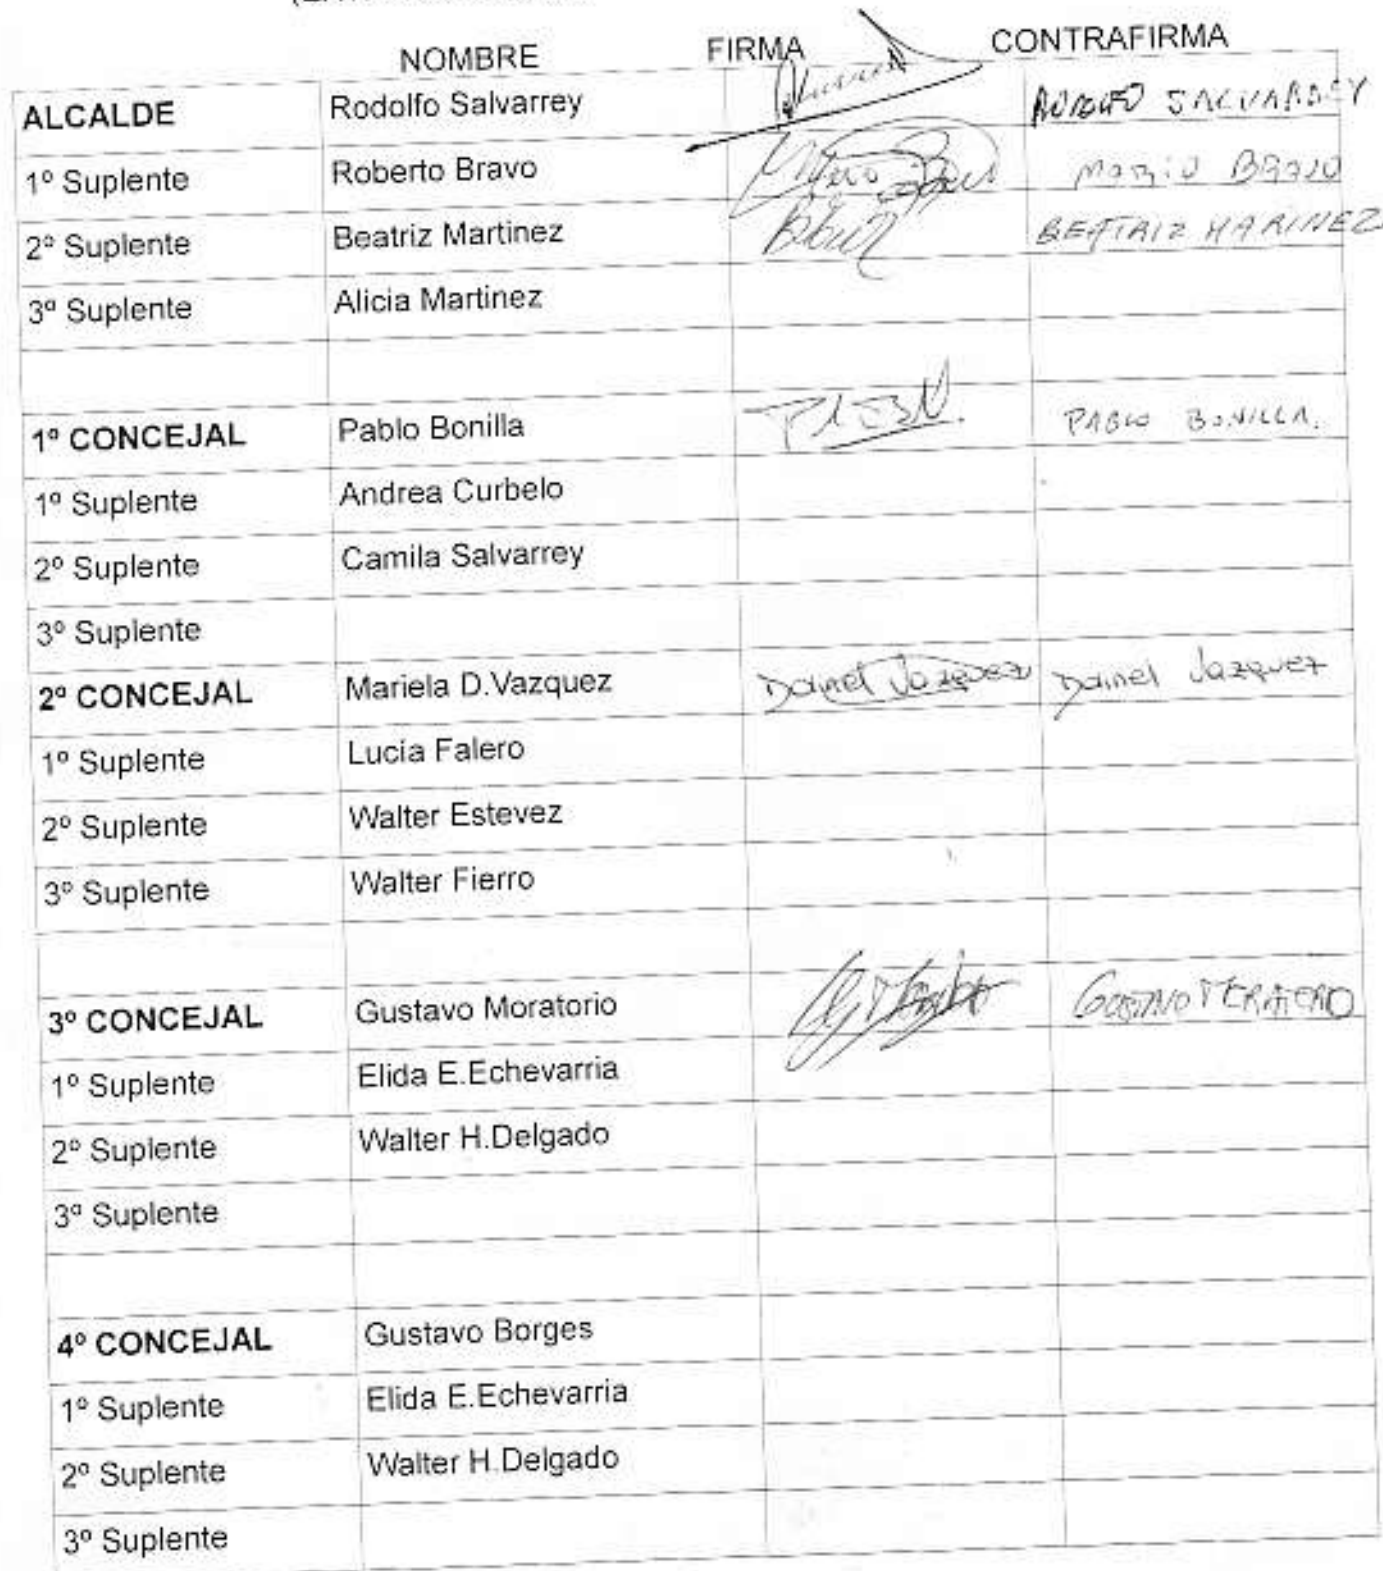 NOMBRE FIRMA CONTRAFIRMA
ALCALDE Rodolfo Salvarrey RODOLFO SALVARREY
1º Suplente Roberto Bravo Mario BRAVO
2º Suplente Beatriz Martinez BEATRIZ MARINEZ
3º Suplente Alicia Martinez
1º CONCEJAL Pablo Bonilla PABLO BONILLA.
1º Suplente Andrea Curbelo
2º Suplente Camila Salvarrey
3º Suplente
2º CONCEJAL Mariela D.Vazquez Daniel Vazquez Daniel Vazquez
1º Suplente Lucia Falero
2º Suplente Walter Estevez
3º Suplente Walter Fierro
3º CONCEJAL Gustavo Moratorio GUSTAVO
1º Suplente Elida E.Echevarria
2º Suplente Walter H.Delgado
3º Suplente
4º CONCEJAL Gustavo Borges
1º Suplente Elida E.Echevarria
2º Suplente Walter H.Delgado
3º Suplente